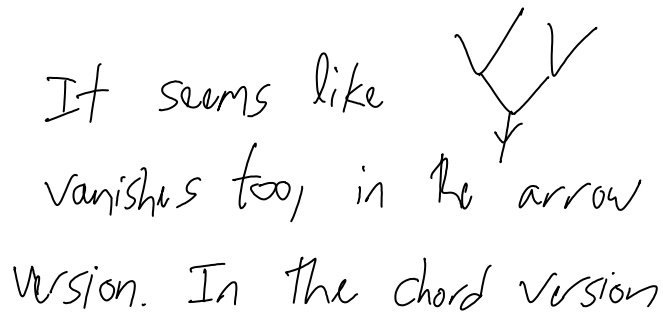 It seems like
vanishes too, in the arrow
version. In the chord version